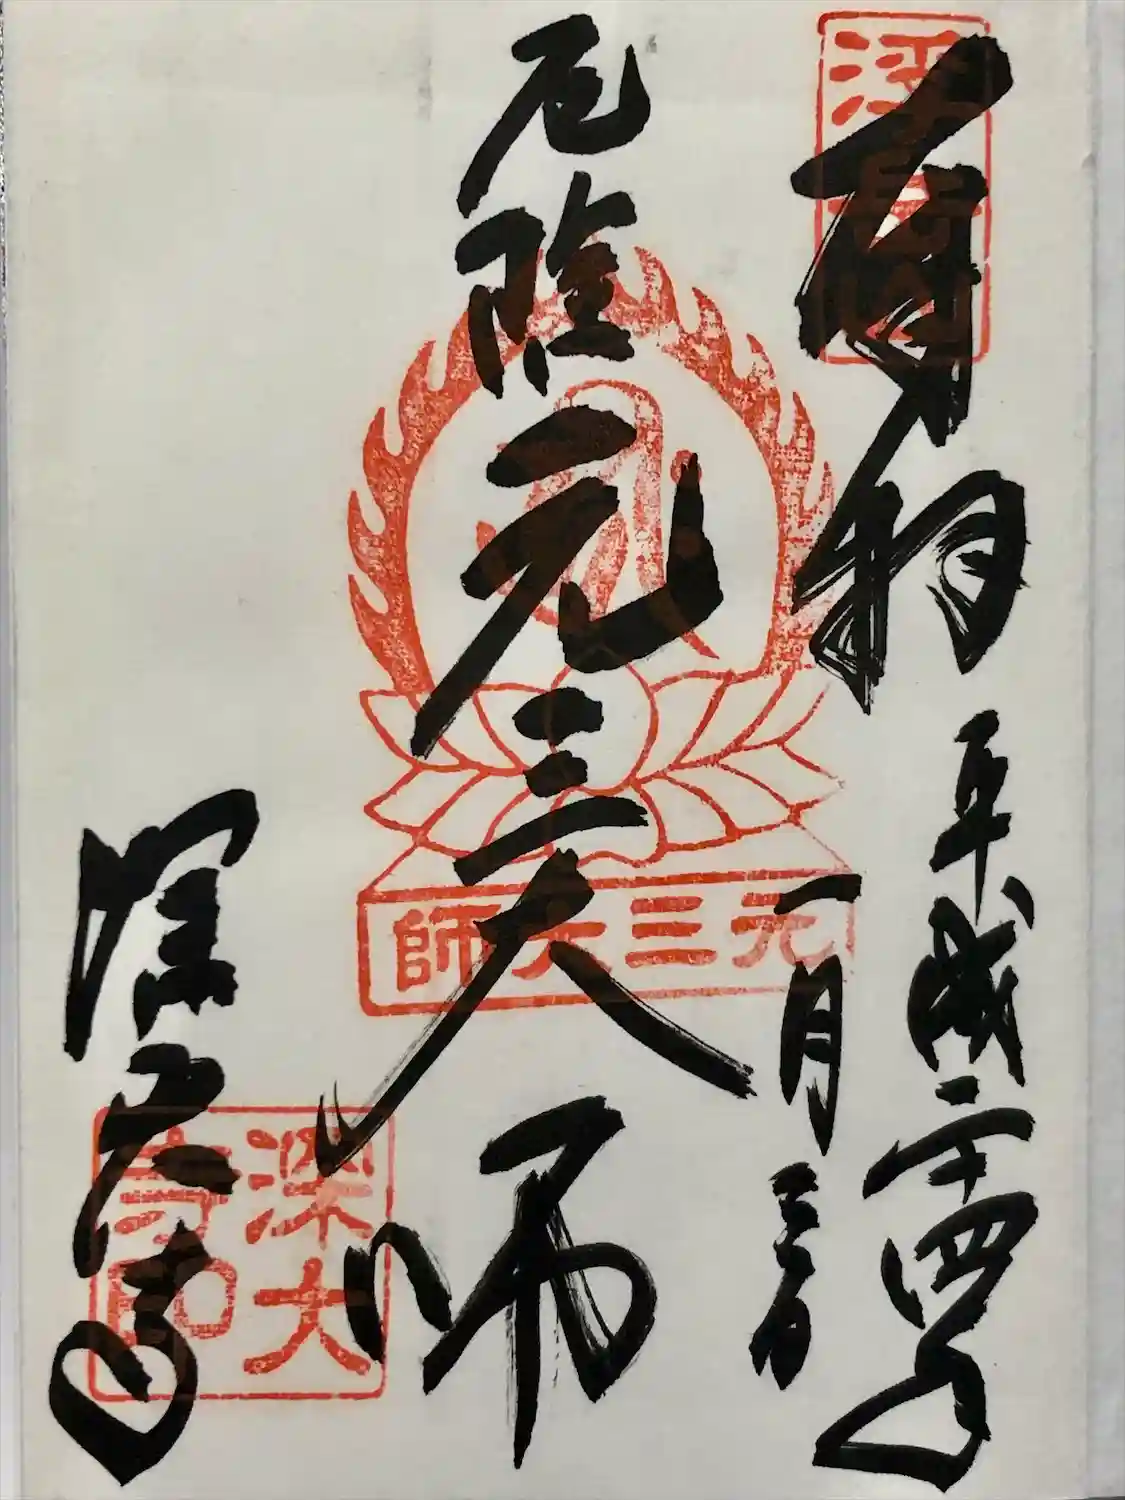 奉拝 平成二十四年
一月三日
厄除元三大師
深大寺
浮岳山
元三大師
深大
寺印